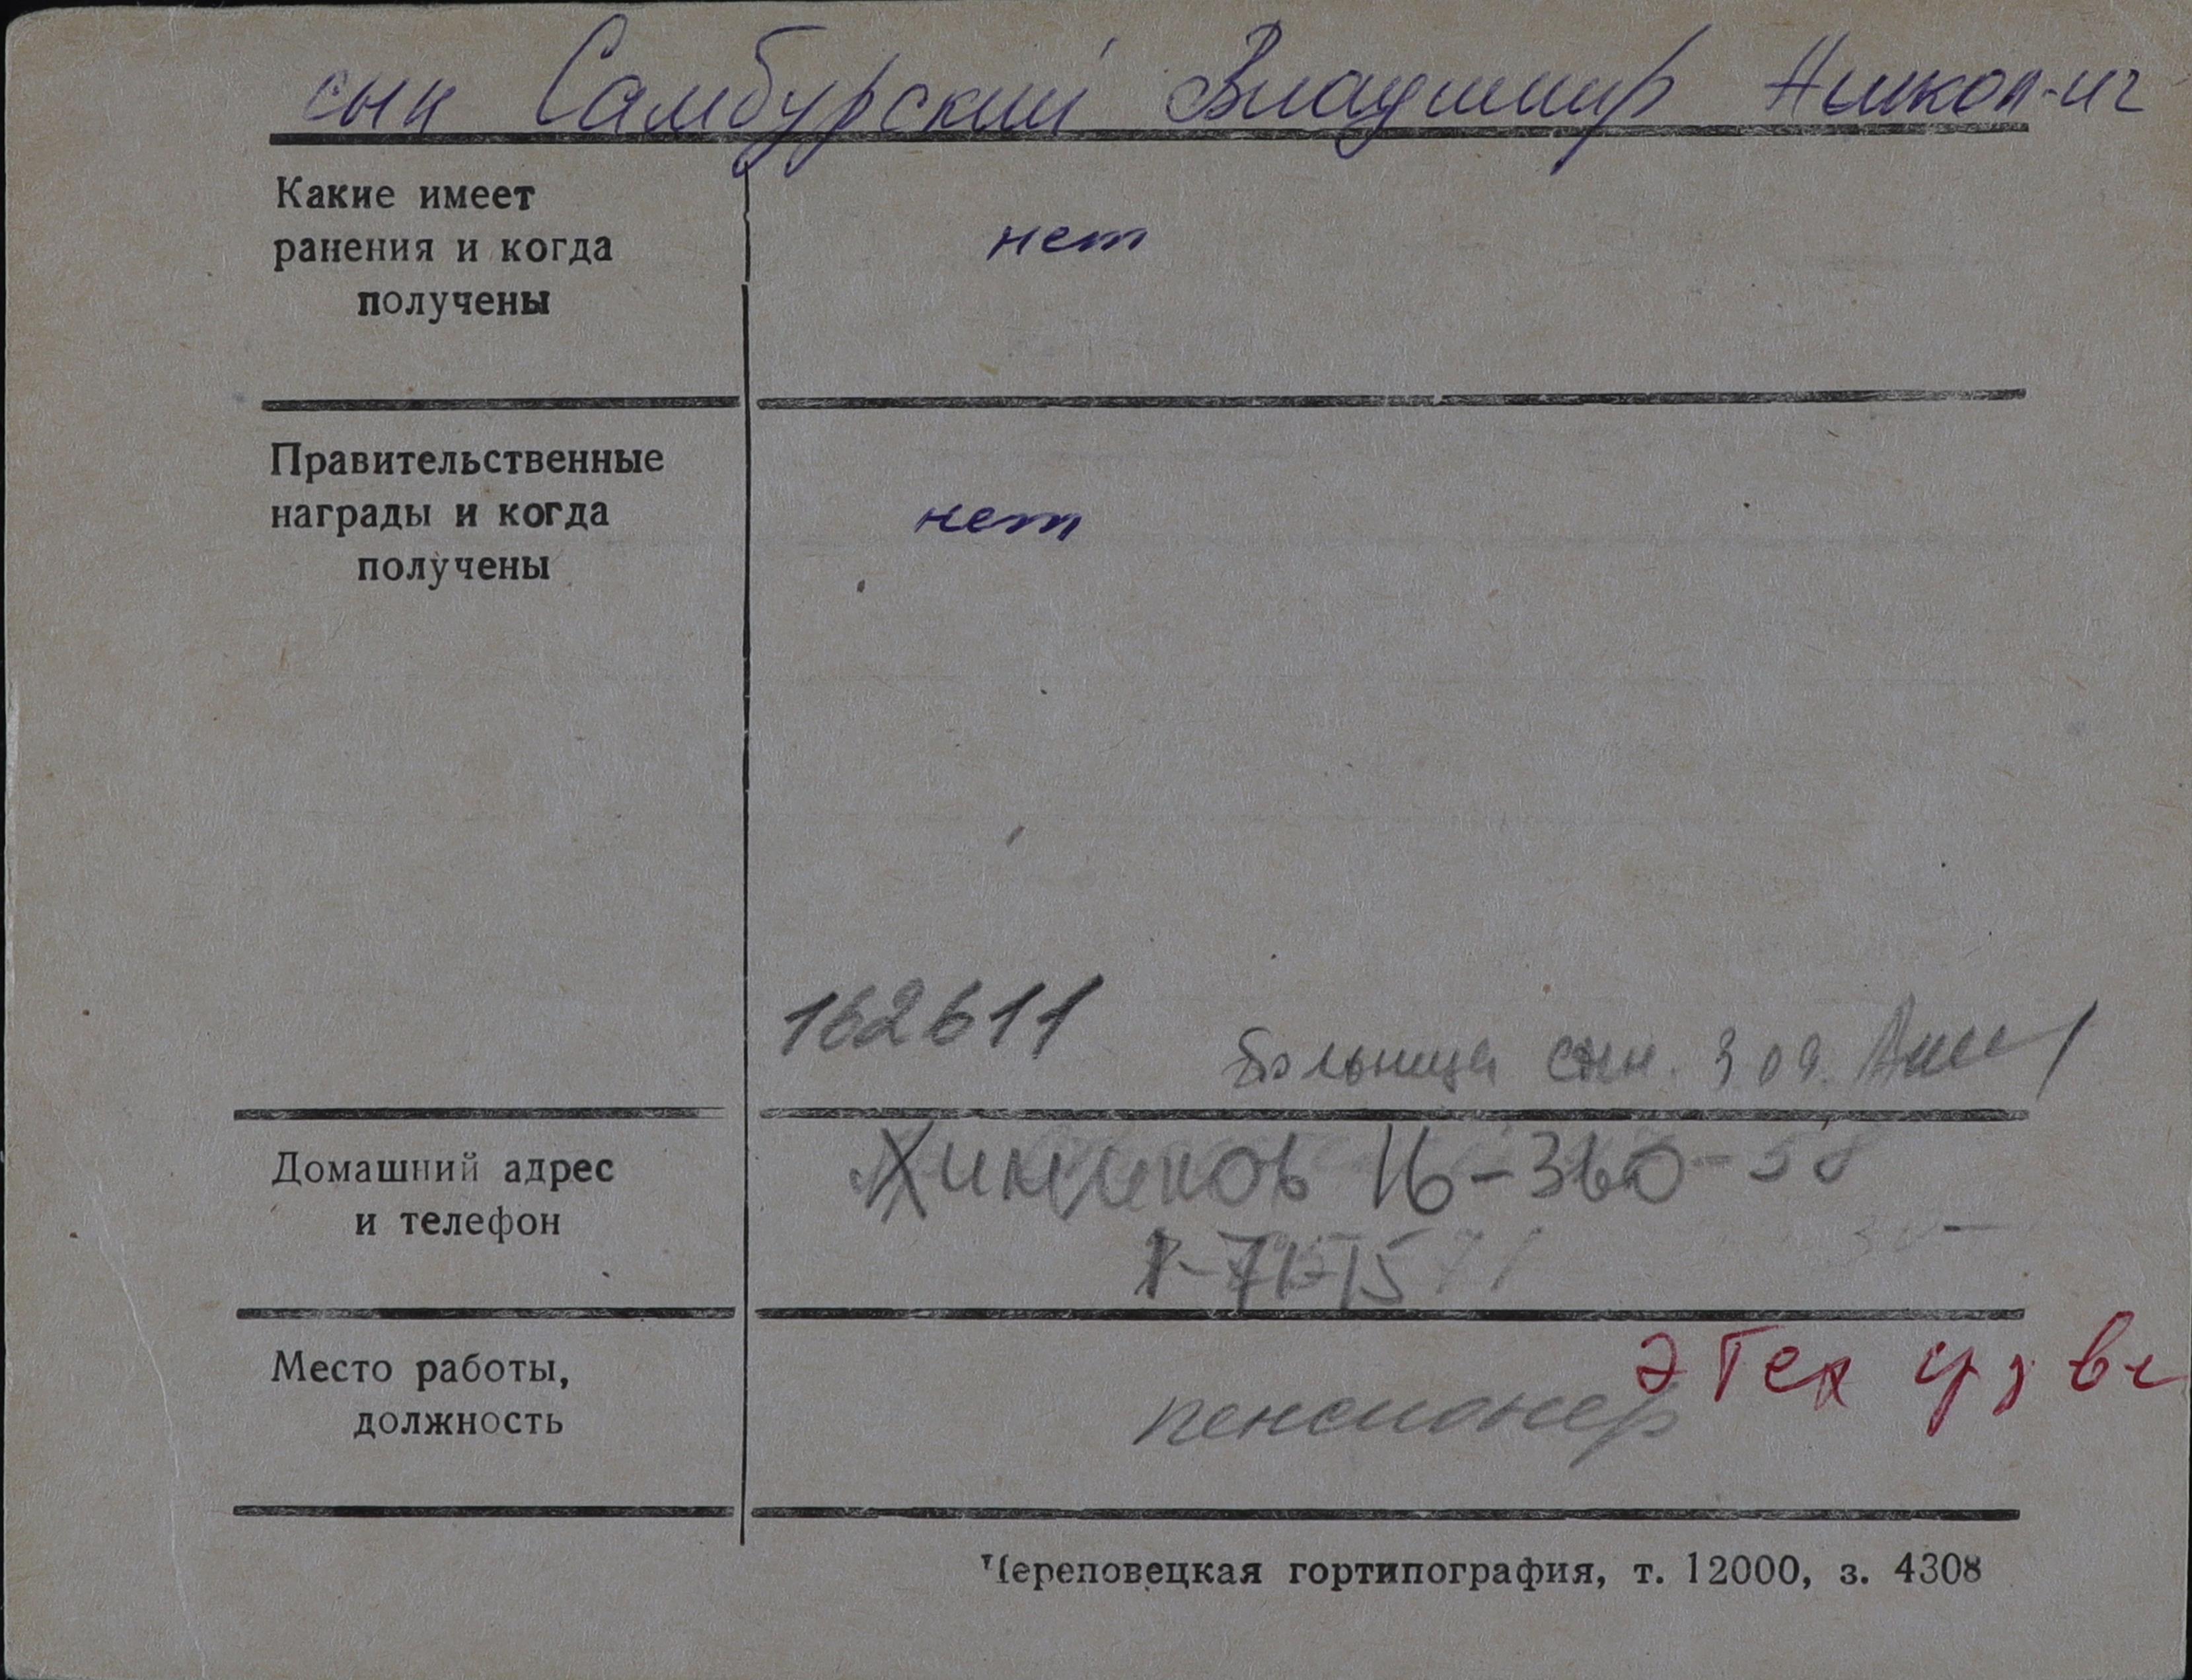 сын Самбурский Владимир Никол-ич
Какие имеет
ранения и когда
получены
нет
Правительственные
награды и когда
получены
нет
162611
больница
Домашний адрес
и телефон
Химиков 16-360-58
Место работы,
должность
пенсионер
Череповецкая гортипография, т. 12000, з. 4308